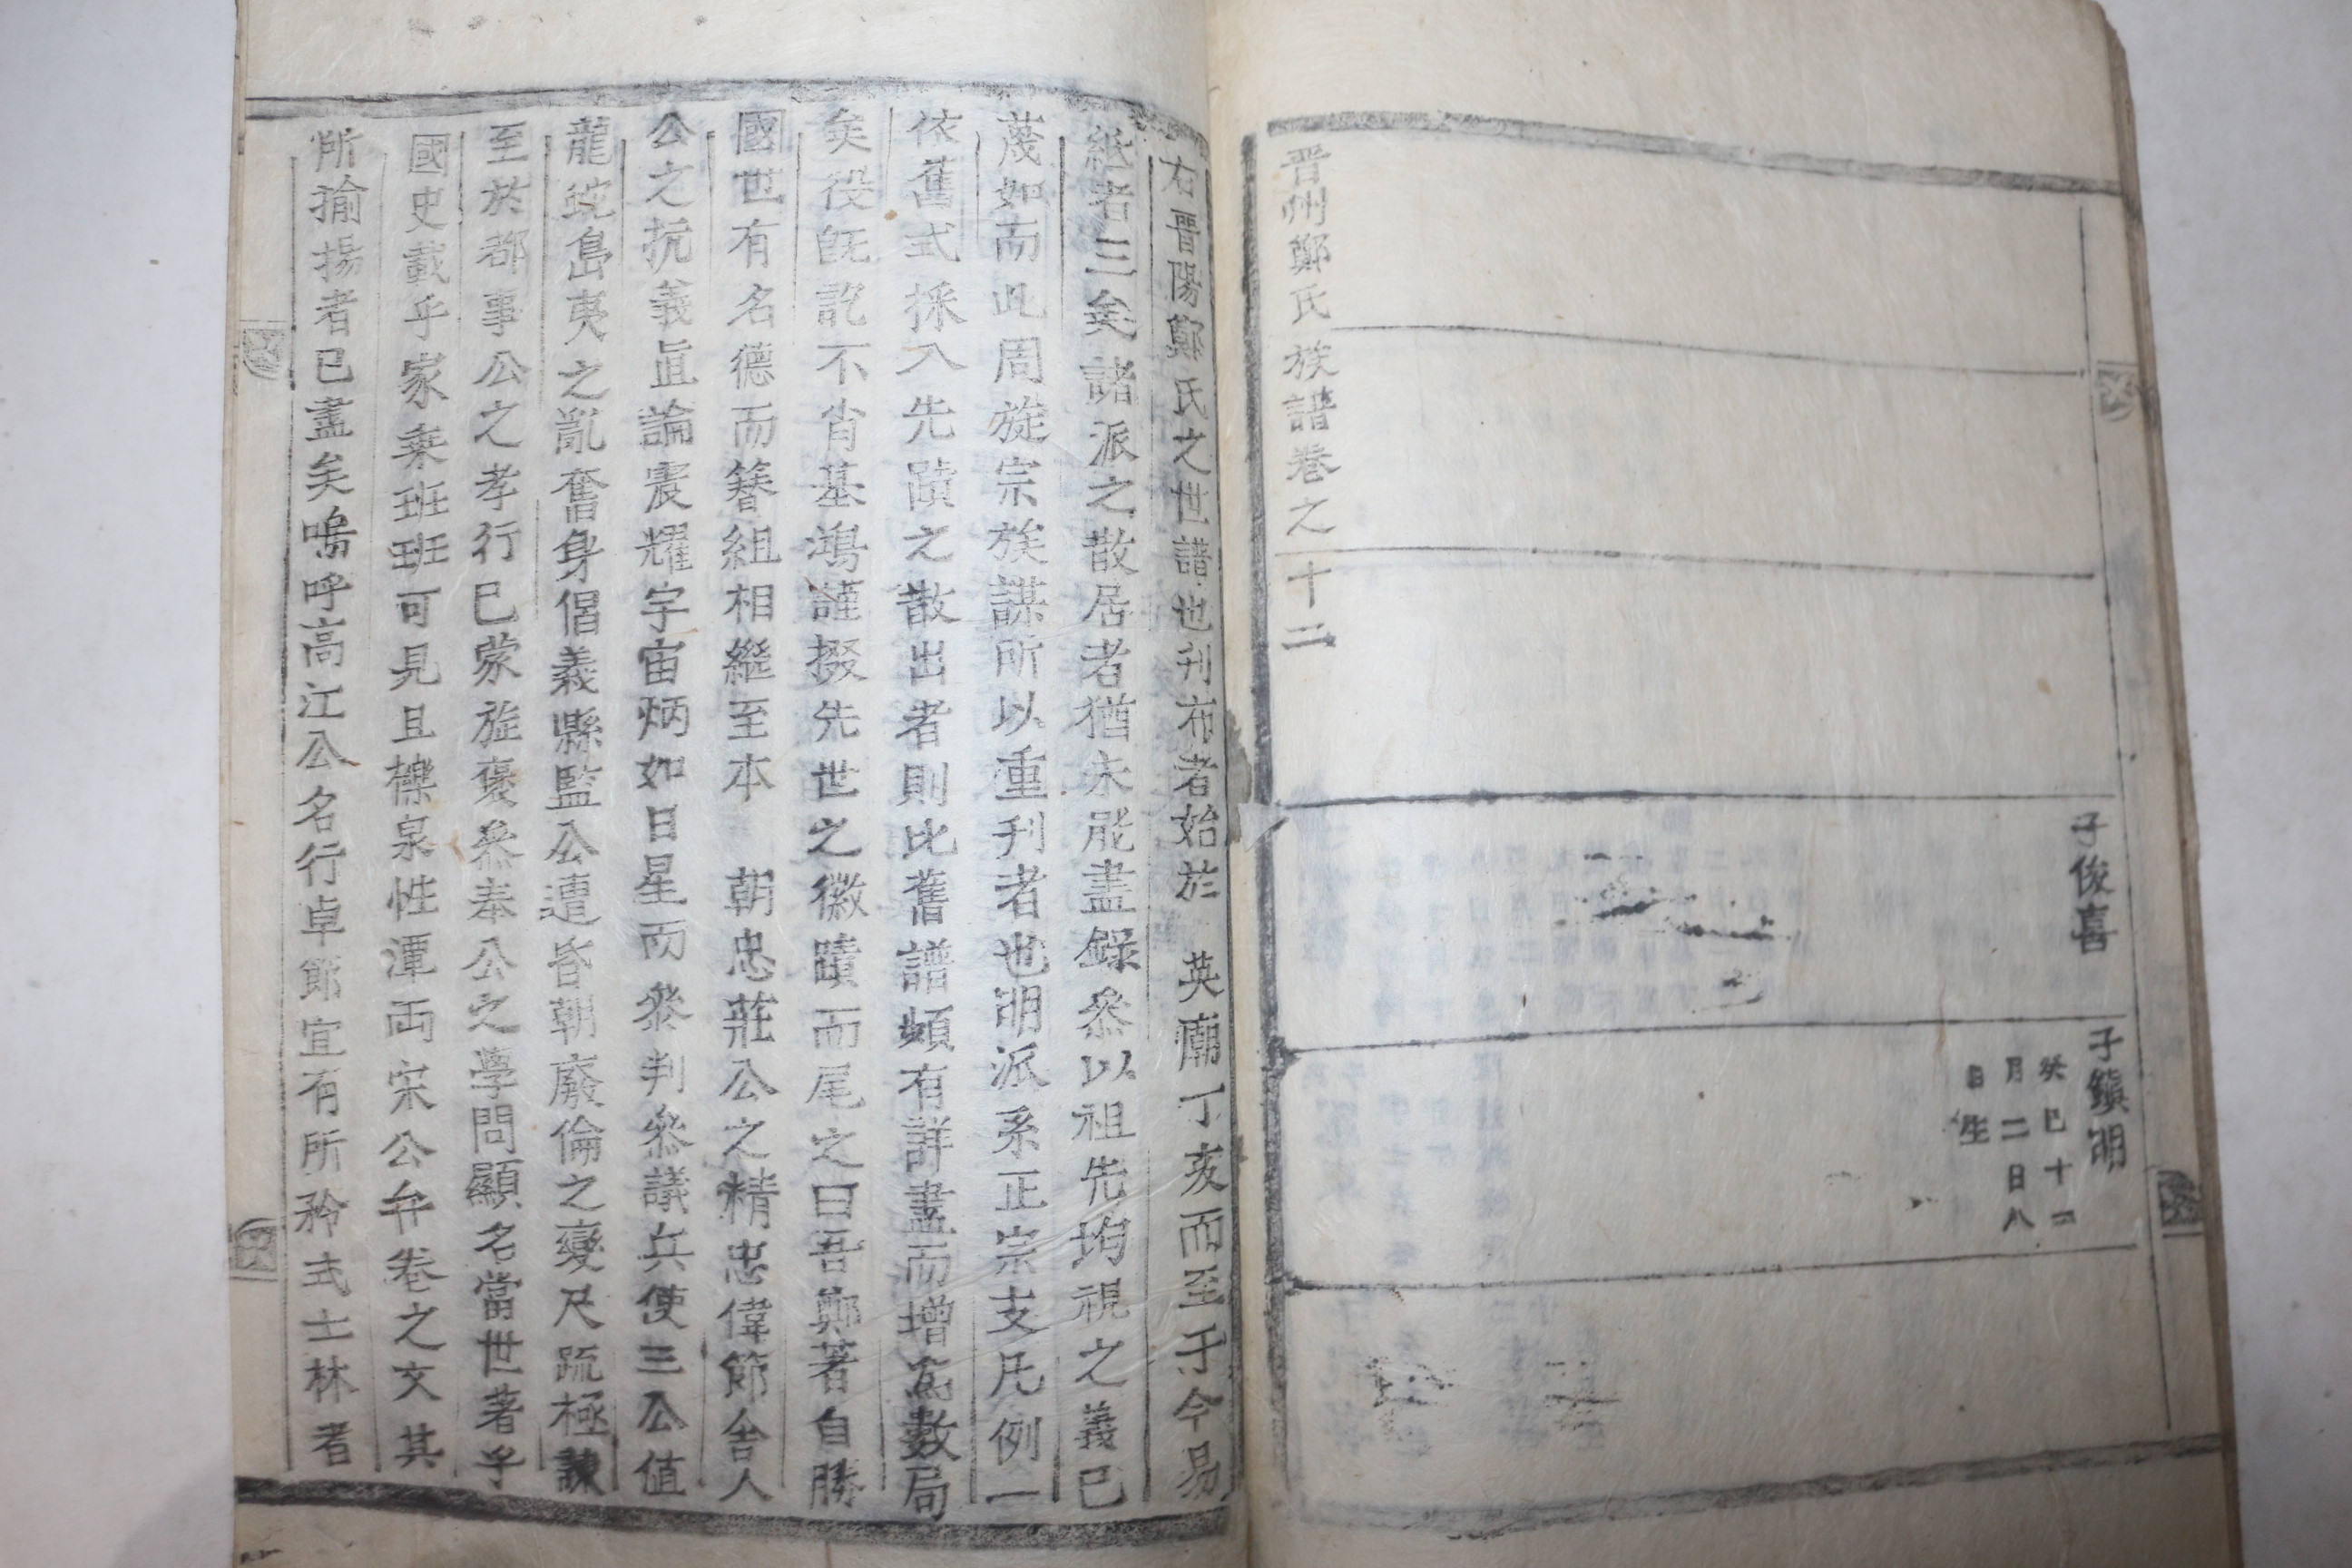 子俊喜
子鎭明
癸巳十二
月二日八
日生
晋州鄭氏族譜卷之十二
右晋陽鄭氏之世譜也刋布者始於 英廟丁亥而至于今易
紙者三矣諸派之散居者猶未能盡錄叅以祖先均視之義已
蔑如而此周旋宗族謀所以重刋者也明派系正宗支凡例一
依舊式採入先蹟之散出者則比舊譜頗有詳盡而增爲數局
矣役旣訖不肖基鴻謹掇先世之徽蹟而尾之曰吾鄭著自勝
國世有名德而簪組相繼至本 朝忠莊公之精忠偉節舍人
公之抗義直論震耀宇宙炳如日星而叅判叅議兵使三公値
龍蛇島夷之亂奮身倡義縣監公遭昏朝廢倫之變尺疏極諫
至於都事公之孝行已蒙旌褒叅奉公之學問顯名當世著乎
國史載乎家乘班班可見且櫟泉性潭両宋公弁卷之文其
所揄揚者已盡矣嗚呼高江公名行卓節宜有所矜式士林者